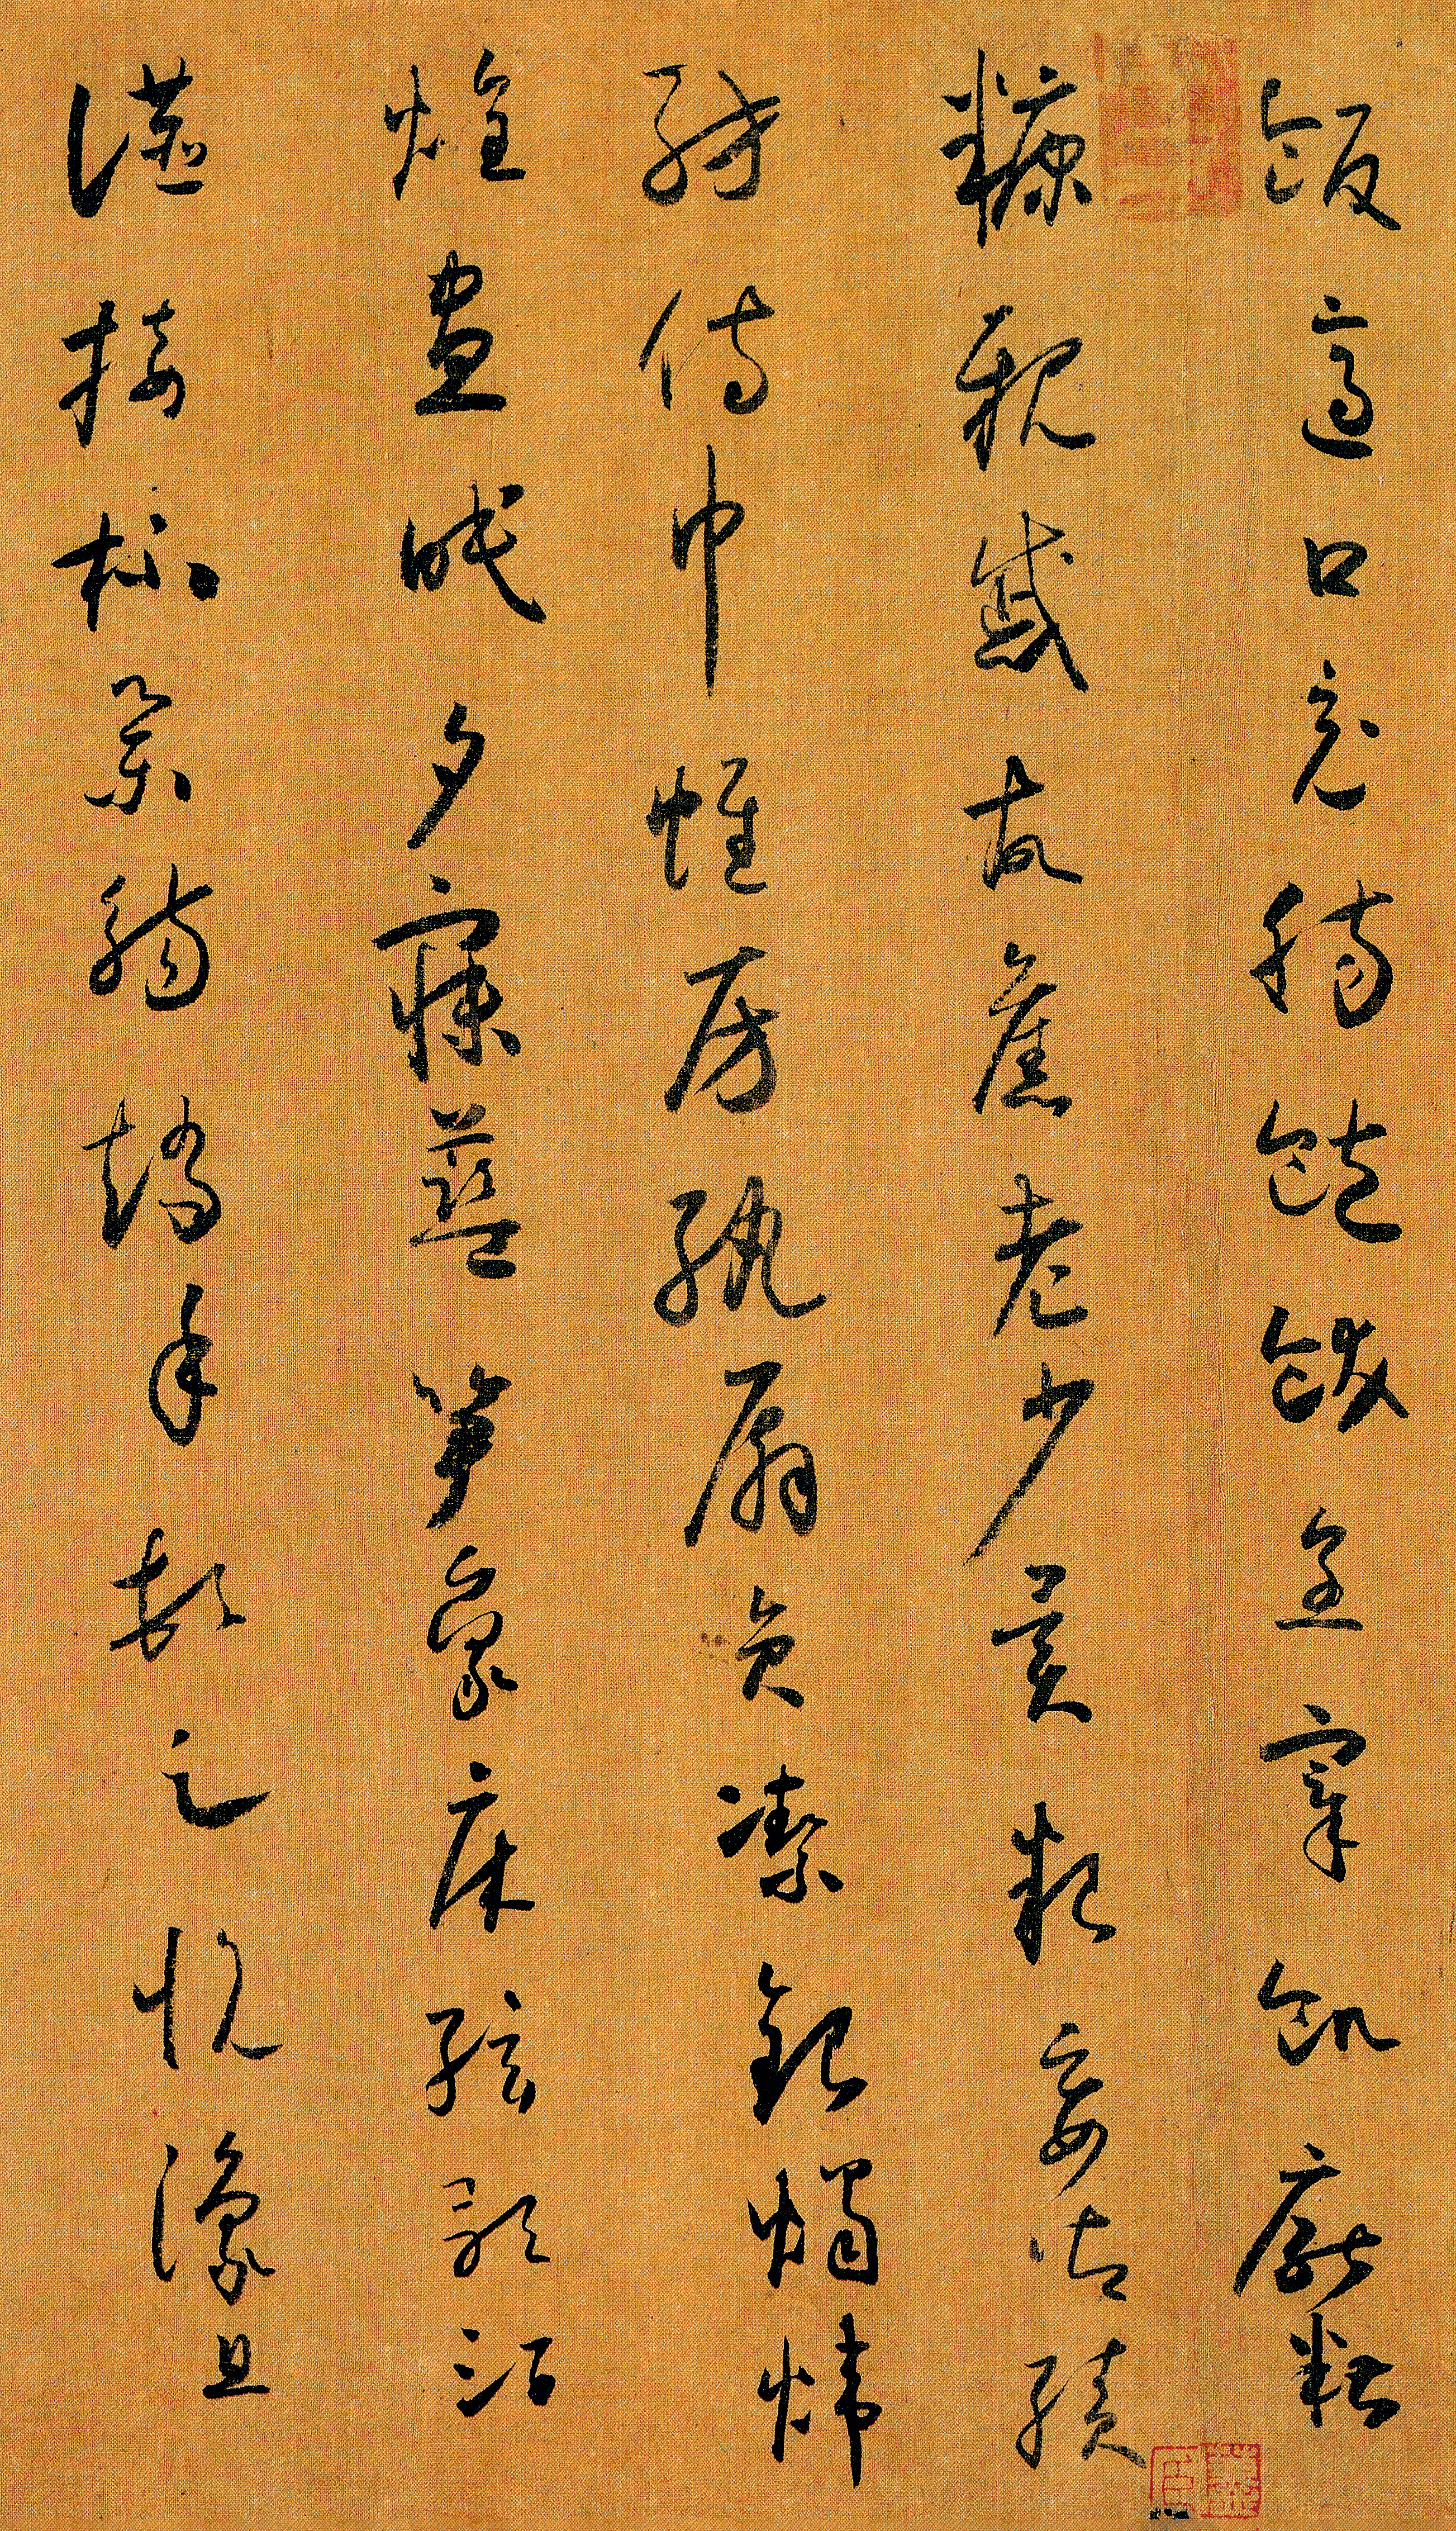 飯適口充腸飽飫烹宰飢厭糟
糠親戚故舊老少異粮妾御績
紡侍巾帷房紈扇員潔銀燭煒
煌晝眠夕寐藍笋象床絃歌酒
讌接杯舉觴矯手頓足悅豫且